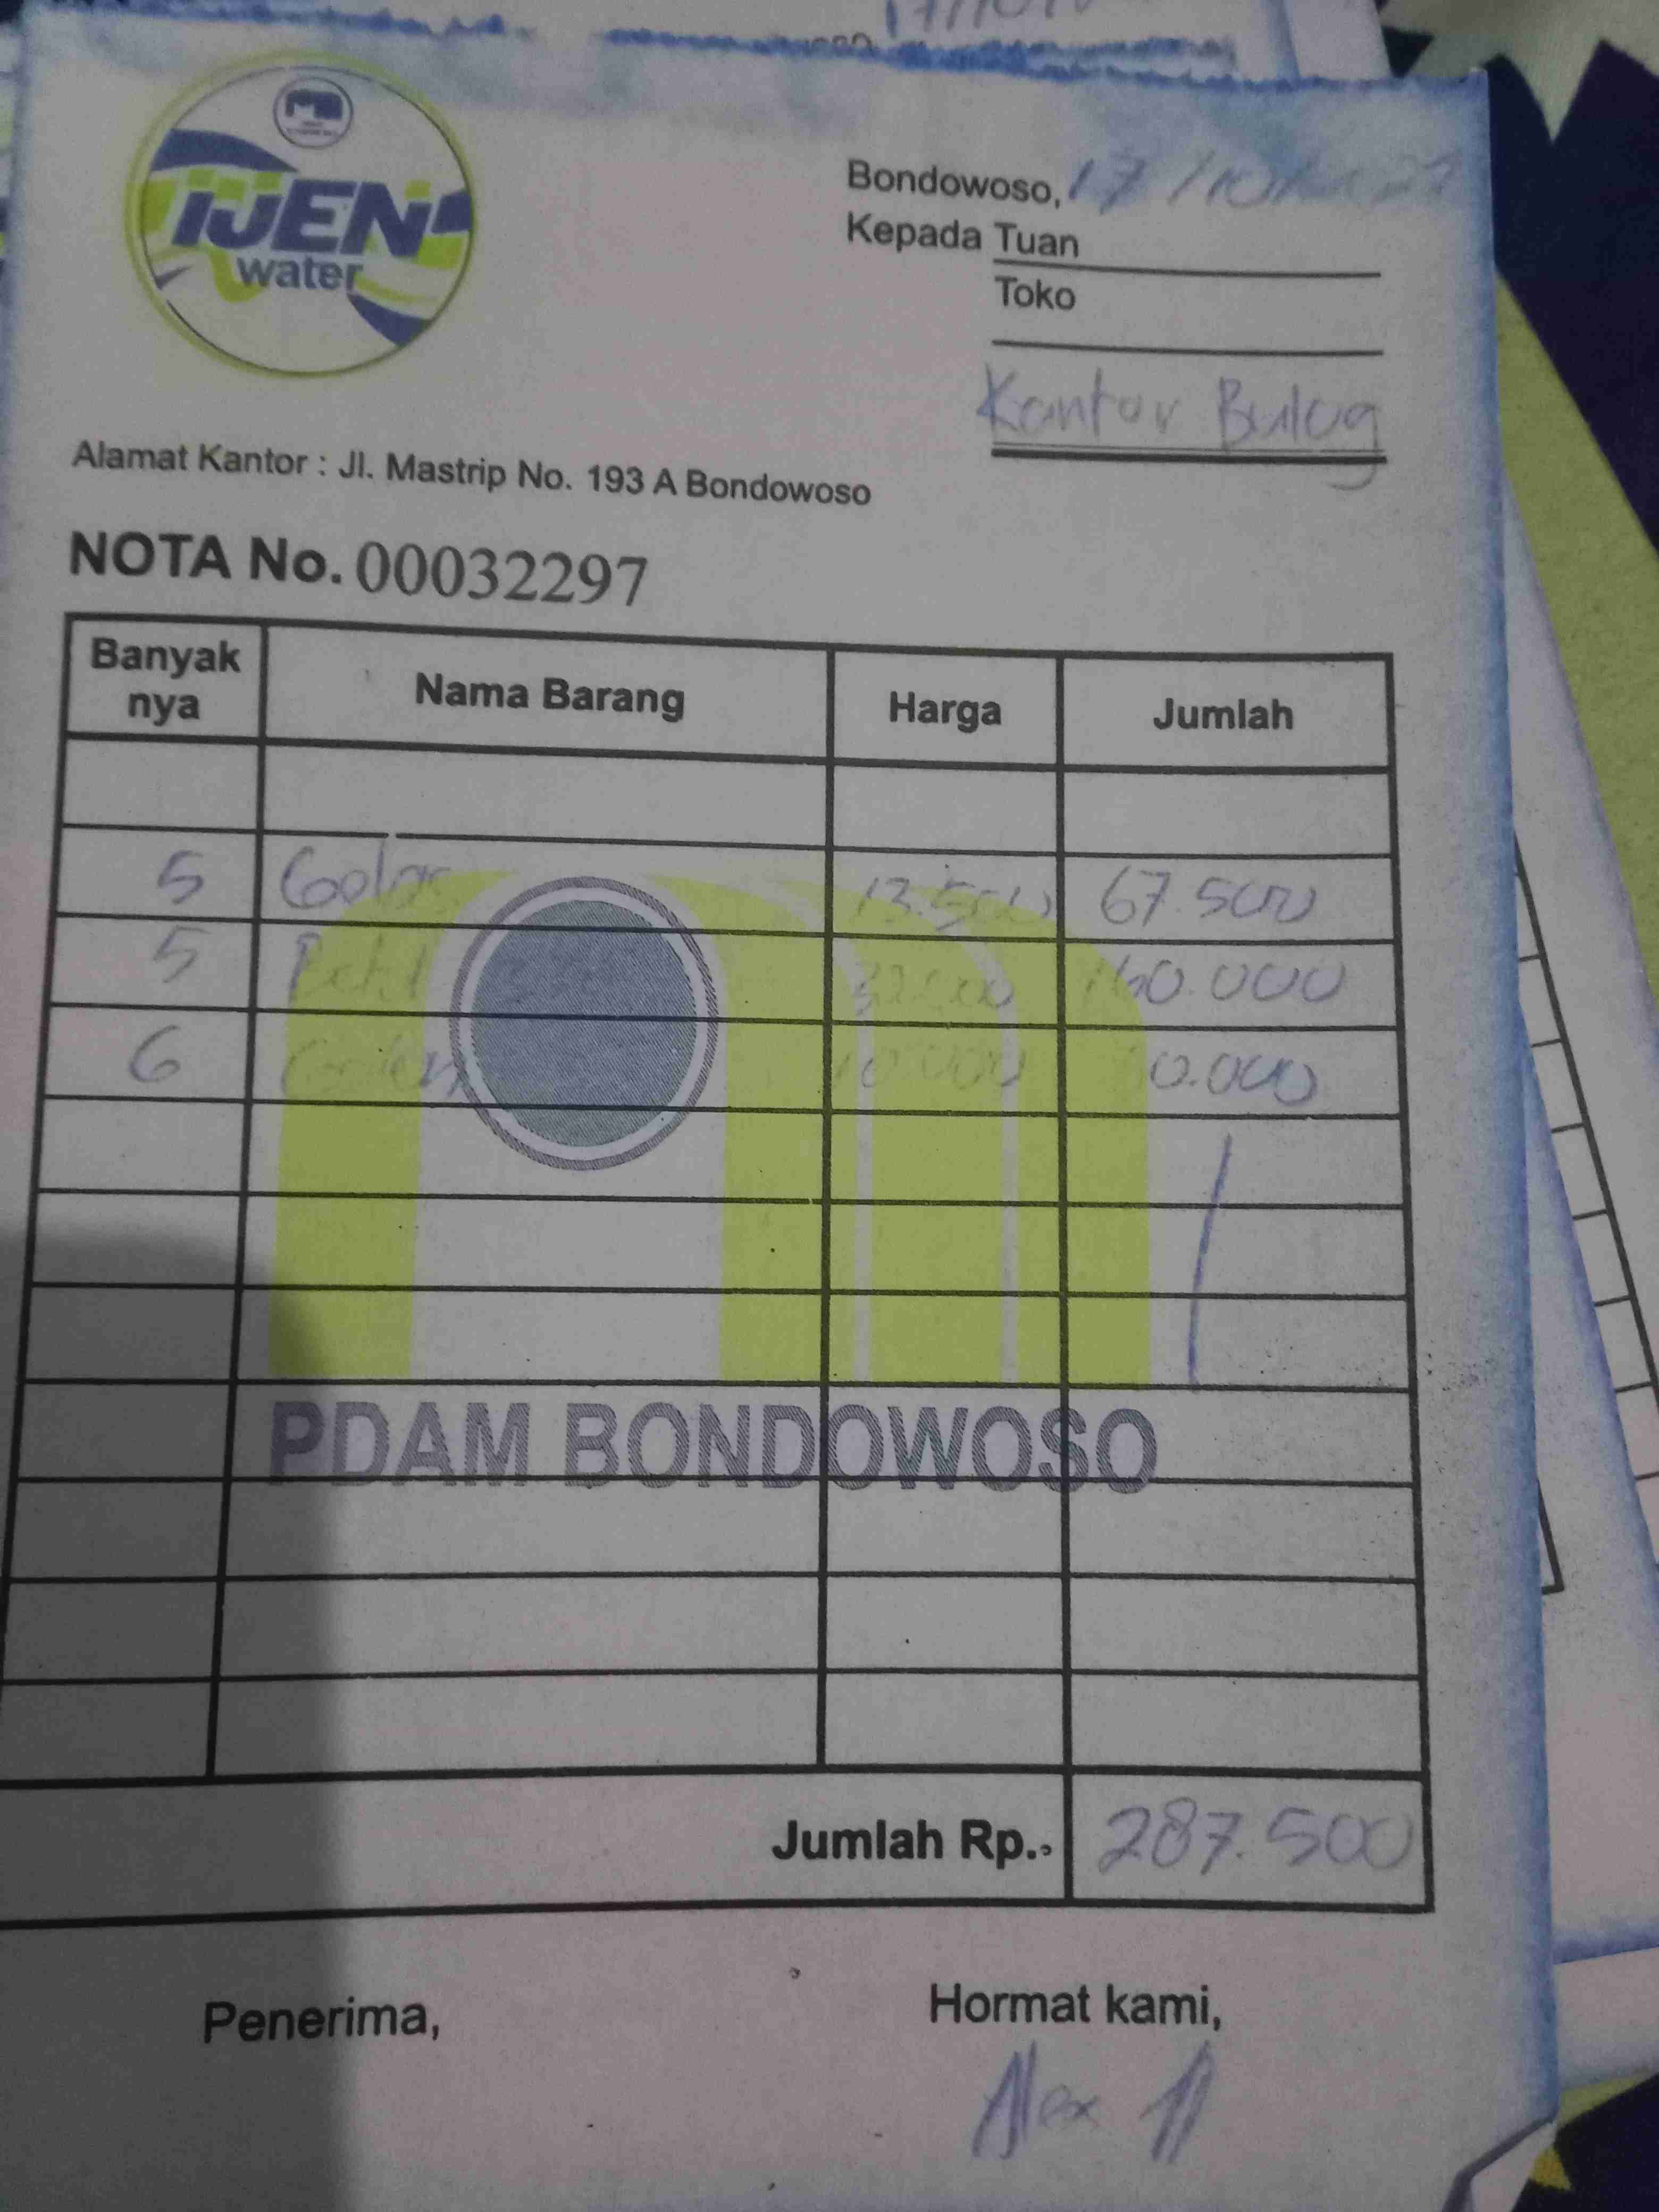 IJEN
water
Bondowoso, 17/10
Kepada Tuan
Toko
Kantor Bulog
Alamat Kantor : Jl. Mastrip No. 193 A Bondowoso
NOTA No. 00032297
Banyak nya Nama Barang Harga Jumlah
5 Gelas 13.500 67.500
5 32.000 160.000
6 10.000 0.000
PDAM BONDOWOSO
Jumlah Rp. 287.500
Penerima, Hormat kami,
Alex